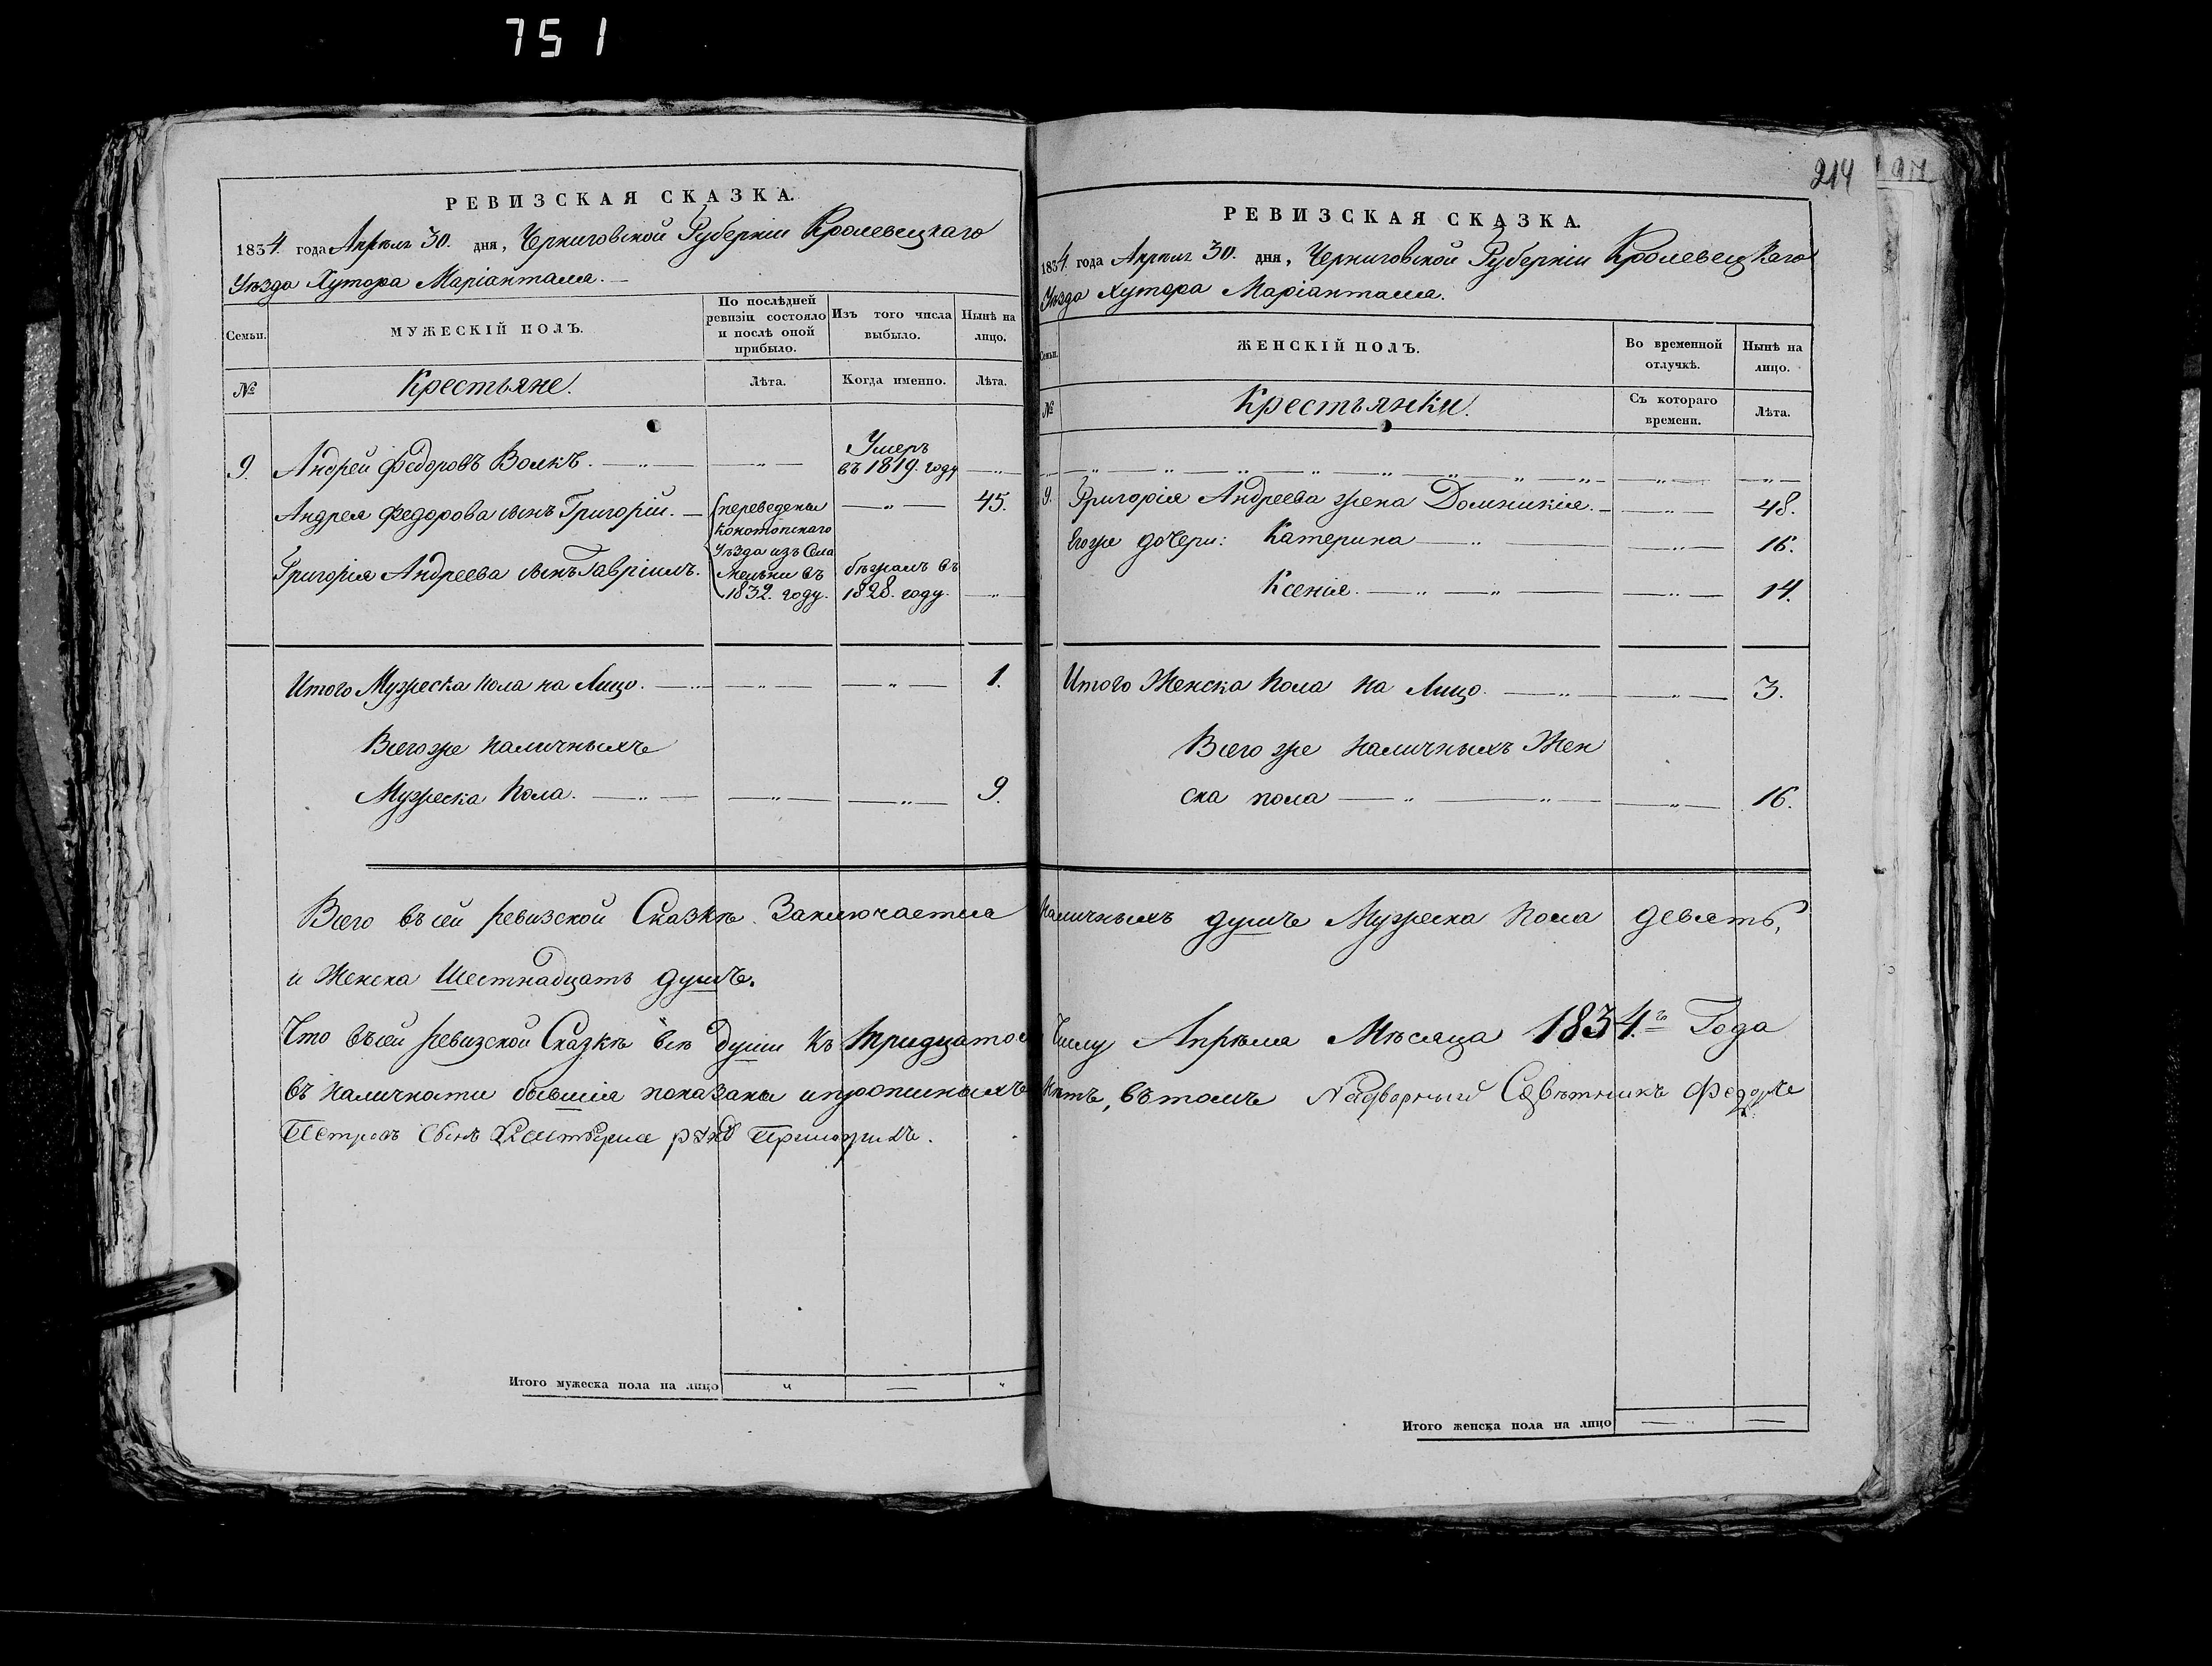 751
РЕВИЗСКАЯ СКАЗКА.
1834. года Апрѣля 30. дня, Черниговской Губерніи Кролевецкаго
Уѣзда Хутора Маріанталя.
Семьи.
МУЖЕСКІЙ ПОЛЪ.
По послѣдней ревизіи состояло и послѣ оной прибыло.
Изъ того числа выбыло.
Нынѣ на лицо.
№
Крестьяне.
Лѣта.
Когда именно.
Лѣта.
9. Андрей Федоровъ Волкъ. Умеръ въ 1819. году
Андрея Федорова сынъ Григорій. 45.
Григорія Андреева сынъ Гавріилъ. бѣжалъ въ 1828. году.
переведены
Конотопскаго
Уѣзда изъ Села
въ
1832. году.
Итого Мужеска пола на Лицо. 1.
Всего же наличныхъ
Мужеска Пола. 9.
214
РЕВИЗСКАЯ СКАЗКА.
1834. года Апрѣля 30. дня, Черниговской Губерніи Кролевецкаго
Уѣзда Хутора Маріанталя.
Семьи.
ЖЕНСКІЙ ПОЛЪ.
Во временной отлучкѣ.
Нынѣ на лицо.
№
Крестьянки.
Съ котораго времени.
Лѣта.
9. Григорія Андреева жена Домникія. 48.
Егоже дочери: Катерина 16.
Ксенія. 14.
Итого Женска Пола на Лицо. 3.
Всего же наличныхъ Жен
ска пола 16.
Всего въ сей ревизской Сказкѣ Заключается наличныхъ душъ Мужеска Пола девять,
и Женска Шестнадцать душъ.
Что въ сей ревизской Сказкѣ всѣ души къ тридцатому Числу Апрѣля Мѣсяца 1834.го Года
въ наличности бывшія показаны и прописныхъ нѣтъ, въ томъ Надворный Совѣтникъ Федоръ
Петровъ Сынъ руку Приложилъ.
Итого мужеска пола на лицо
Итого женска пола на лицо